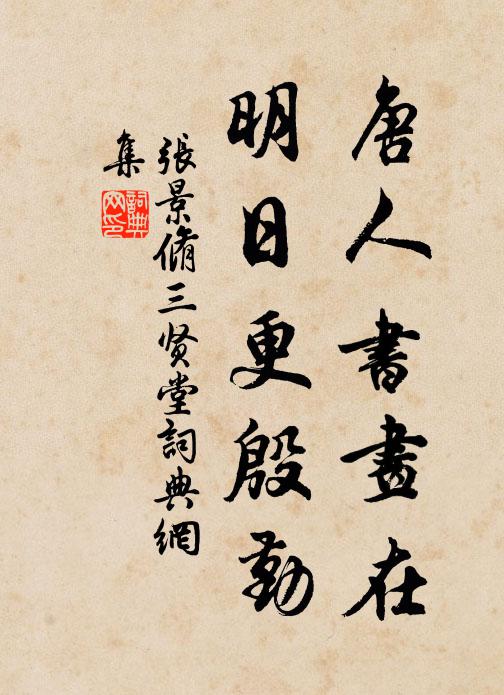 唐人書畫在
明日更殷勤
張景脩三贤堂詞典網
集
詞典网印